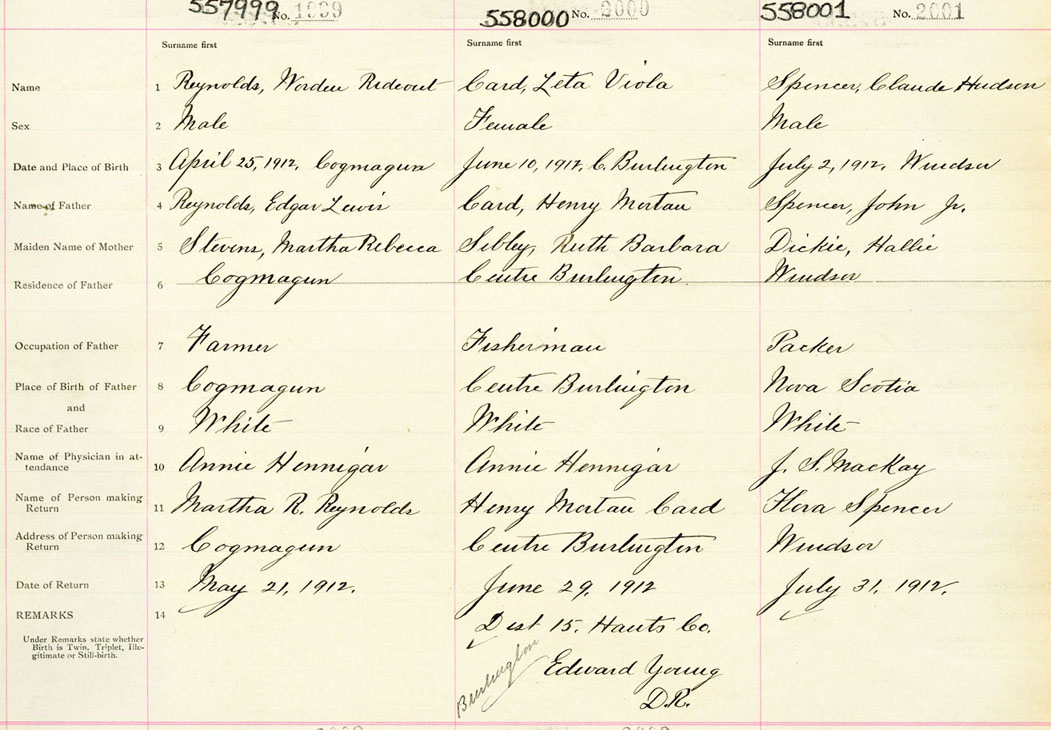 557999 No. 1999 558000 No. 2000 558001 No. 2001
Surname first Surname first Surname first
Name 1 Reynolds, Worden Rideout Card, Leta Viola Spencer, Claude Hudson
Sex 2 Male Female Male
Date and Place of Birth 3 April 25, 1912, Cogmagun June 10, 1912, C. Burlington July 2, 1912, Windsor
Name of Father 4 Reynolds, Edgar Lewis Card, Henry Mortau Spencer, John Jr.
Maiden Name of Mother 5 Stevens, Martha Rebecca Sibley, Ruth Barbara Dickie, Hallie
Residence of Father 6 Cogmagun Centre Burlington Windsor
Occupation of Father 7 Farmer Fisherman Packer
Place of Birth of Father 8 Cogmagun Centre Burlington Nova Scotia
and
Race of Father 9 White White White
Name of Physician in at-
tendance 10 Annie Hennigar Annie Hennigar J. S. MacKay
Name of Person making
Return 11 Martha R. Reynolds Henry Mortau Card Flora Spencer
Address of Person making
Return 12 Cogmagun Centre Burlington Windsor
Date of Return 13 May 21, 1912. June 29, 1912 July 31, 1912.
REMARKS 14 Dist 15. Hants Co.
Under Remarks state whether
Birth is Twin, Triplet, Ille-
gitimate or Still-birth.
Burlington
Edward Young
D.R.